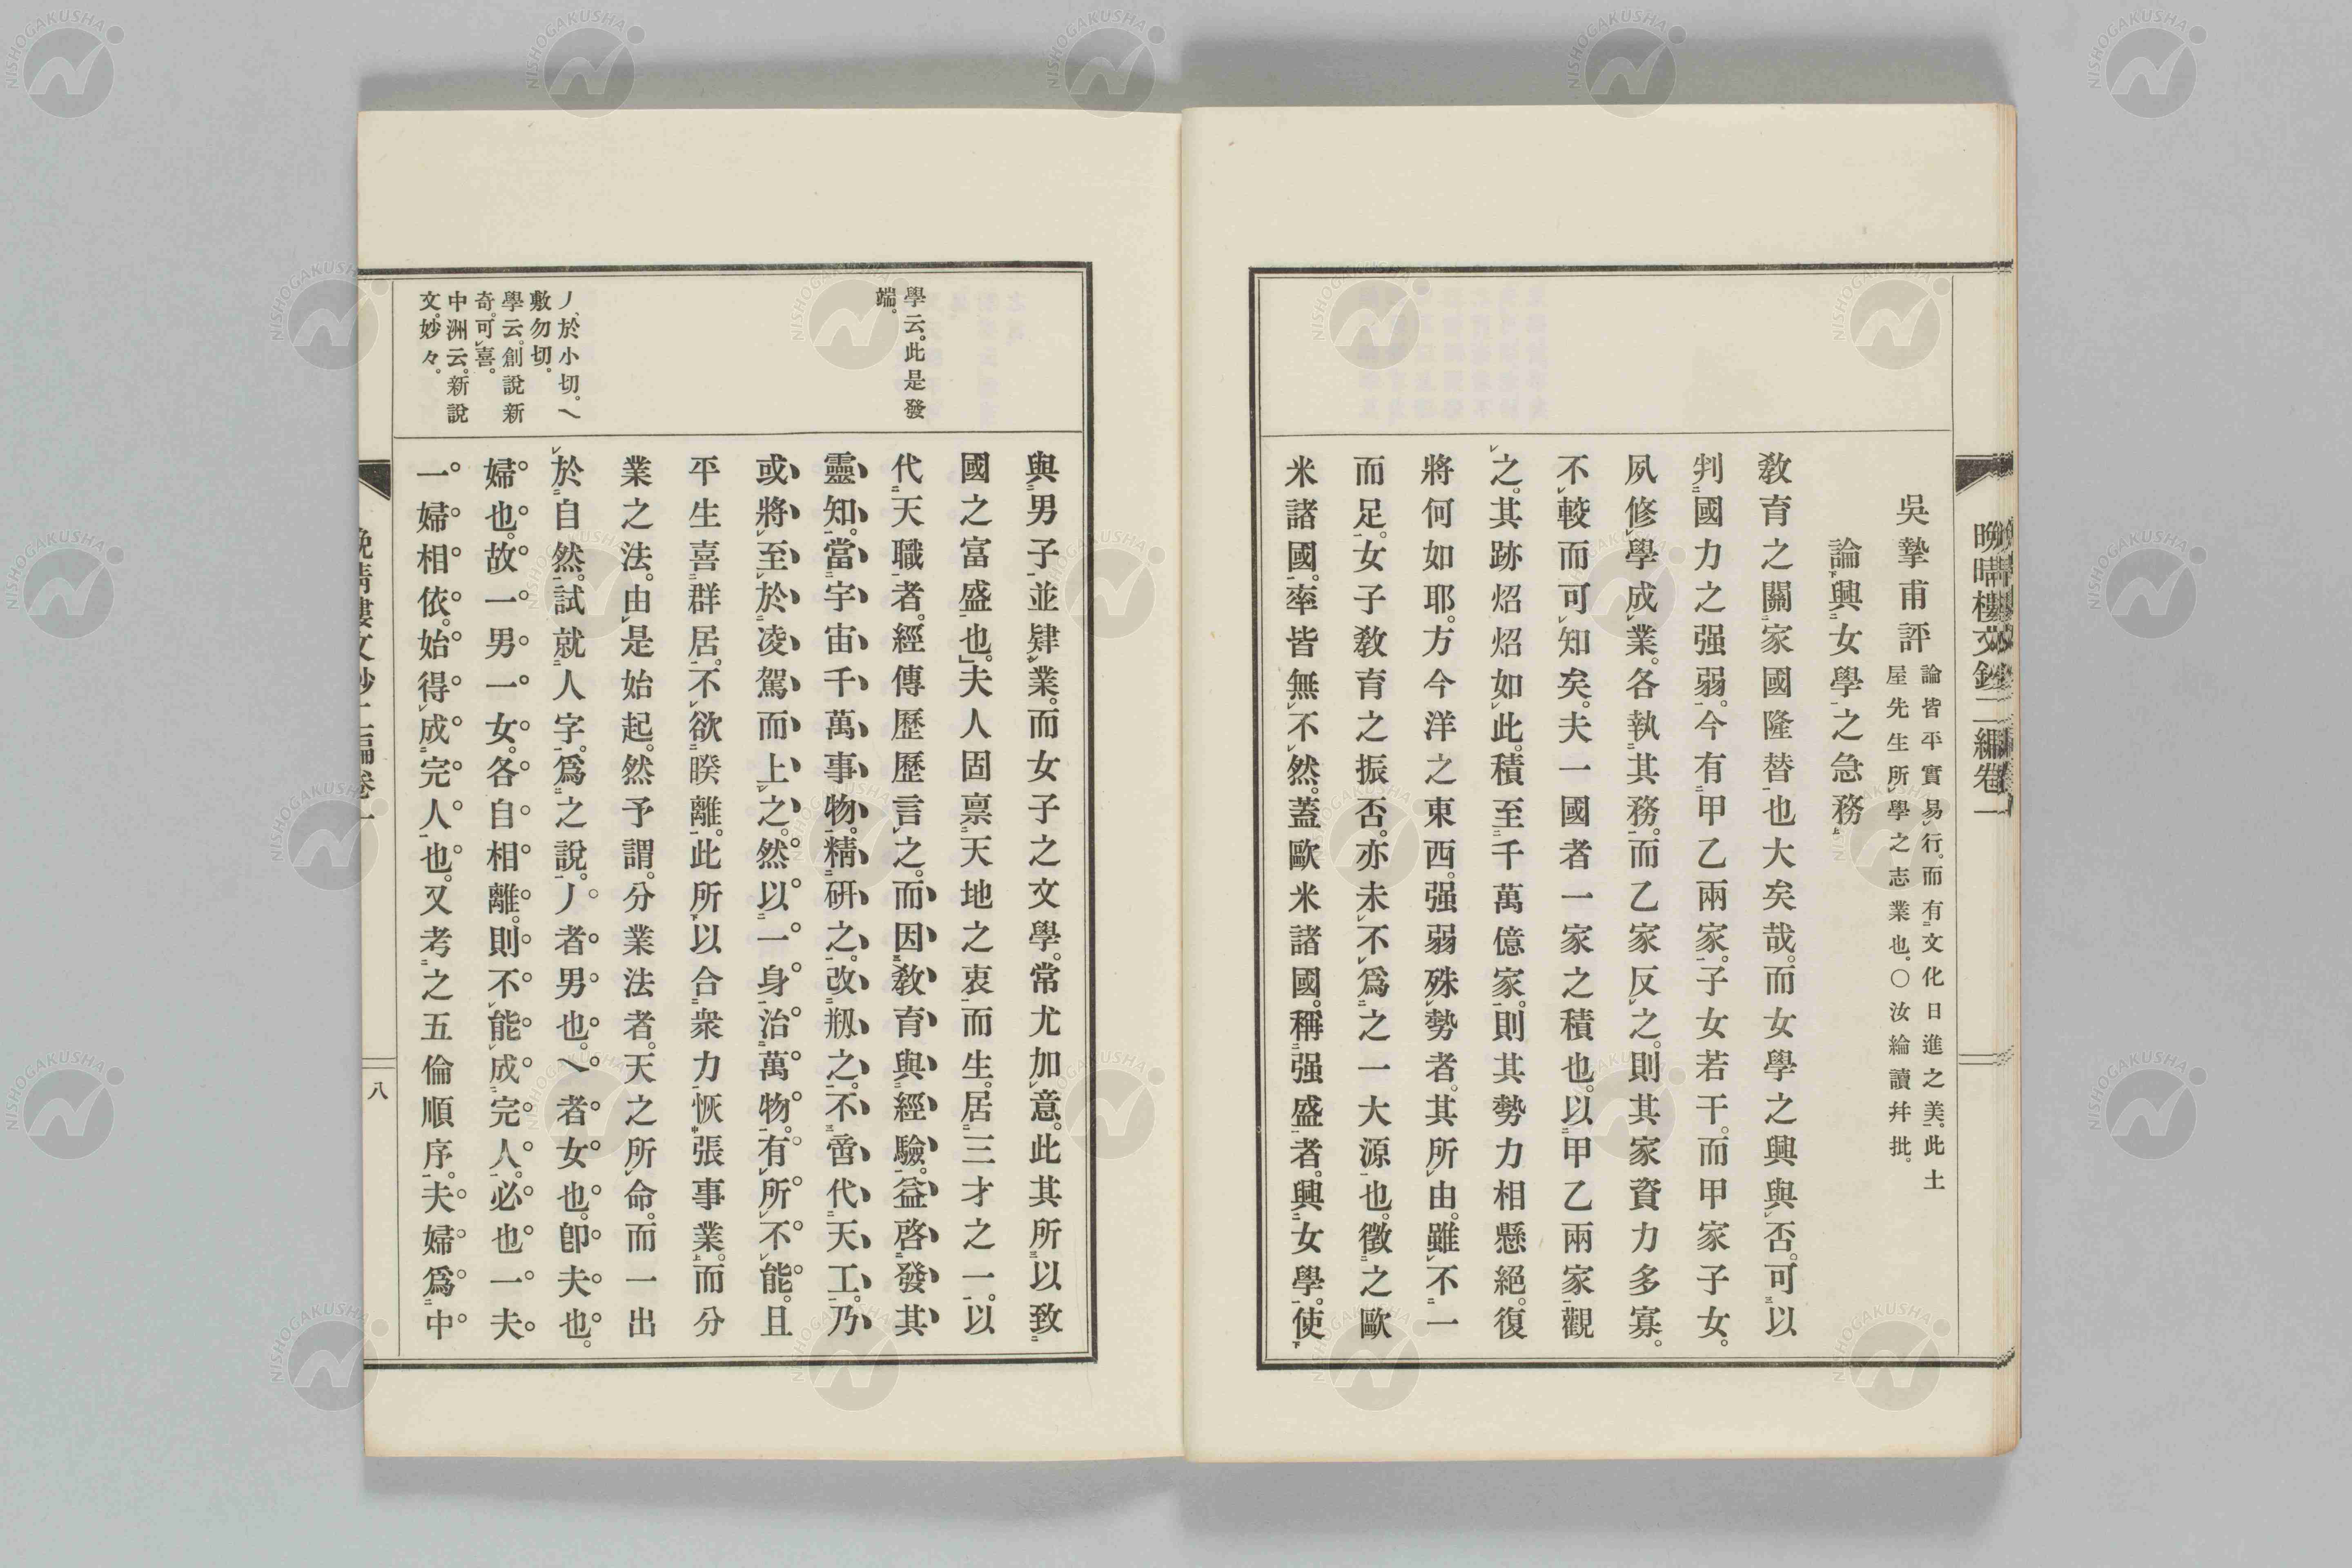 晩晴樓文鈔二編卷一
吳摯甫評 論皆平實易行。而有文化日進之美。此土
屋先生所學之志業也。〇汝綸讀幷批。
論興女學之急務
敎育之關家國隆替也大矣哉。而女學之興與否。可以
判國力之强弱。今有甲乙兩家。子女若干。而甲家子女。
夙修學成業。各執其務。而乙家反之。則其家資力多寡。
不較而可知矣。夫一國者一家之積也。以甲乙兩家觀
之。其跡炤炤如此。積至千萬億家。則其勢力相懸絕。復
將何如耶。方今洋之東西。强弱殊勢者。其所由。雖不一
而足。女子敎育之振否。亦未不爲之一大源也。徵之歐
米諸國。率皆無不然。蓋歐米諸國。稱强盛者。興女學。使
與男子並肄業。而女子之文學。常尤加意。此其所以致
國之富盛也。夫人固禀天地之衷而生。居三才之一。以
代天職者。經傳歷歷言之。而因敎育與經驗。益啓發其
靈知。當宇宙千萬事物。精硏之。改剏之。不啻代天工。乃
或將至於凌駕而上之。然以一身治萬物。有所不能。且
平生喜群居。不欲暌離。此所以合衆力恢張事業。而分
業之法。由是始起。然予謂。分業法者。天之所命。而一出
於自然。試就人字。爲之說。丿者男也。乀者女也。卽夫也。
婦也。故一男一女。各自相離。則不能成完人。必也一夫
一婦相依。始得成完人也。又考之五倫順序。夫婦爲中
學云。此是發
端。
丿、於小切。乀
敷勿切。
學云。創說新
奇。可喜。
中洲云。新說
文。妙々。
晩晴樓文鈔二編卷一
八